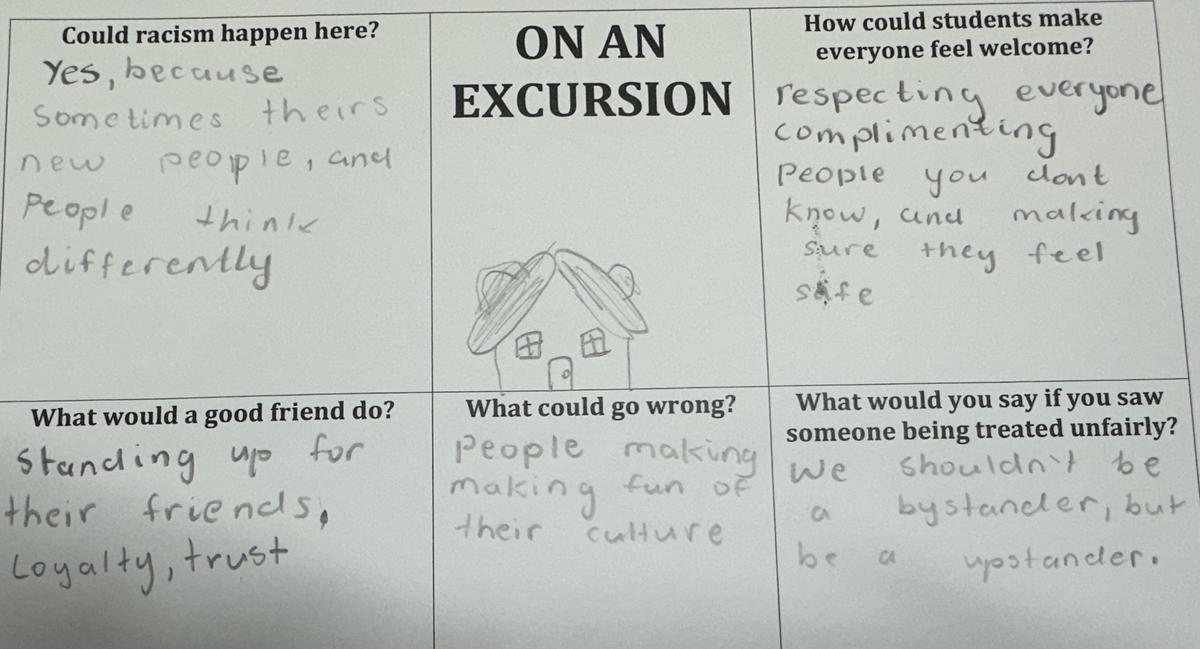 Could racism happen here?
Yes, because
sometimes theirs
new people, and
People think
differently
ON AN
EXCURSION
How could students make
everyone feel welcome?
respecting everyone
complimenting
People you dont
know, and making
sure they feel
safe
What would a good friend do?
Standing up for
their friends,
Loyalty, trust
What could go wrong?
People making
making fun of
their culture
What would you say if you saw
someone being treated unfairly?
We shouldn't be
a bystander, but
be a upstander.